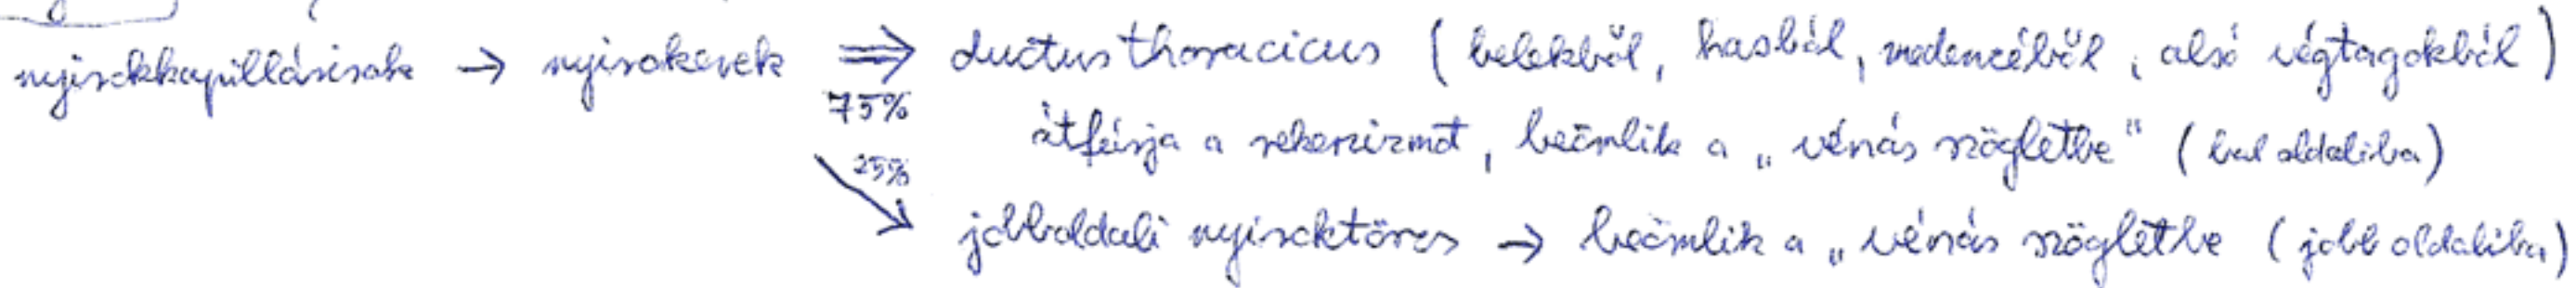 nyirokkapillárisok → nyirokerek ⇒ ductus thoracicus (belekből, hasból, medencéből, alsó végtagokból)
75% átfúrja a rekeszizmot, beömlik a „vénás szögletbe" (bal oldaliba)
25%
jobboldali nyiroktörzs → beömlik a „vénás szögletbe (jobb oldaliba)